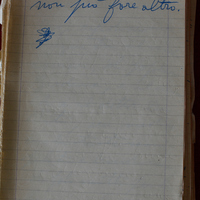 non può fare altro.